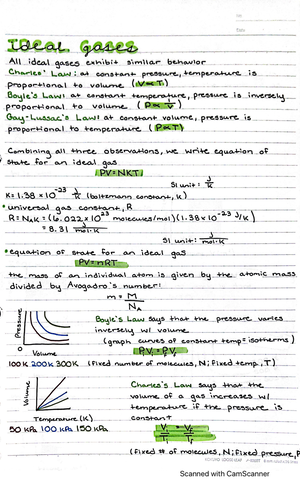 Ideal Gases
All ideal gases exhibit similar behavior
Charles' Law: at constant pressure, temperature is
proportional to volume (V∝T)
Boyle's Law: at constant temperature, pressure is inversely
proportional to volume. (P∝ 1/V)
Gay-Lussac's Law: at constant volume, pressure is
proportional to temperature (P∝T)
Combining all three observations, we write equation of
state for an ideal gas
PV=NKT
SI unit: J/K
K=1.38 ×10⁻²³ J/K (boltzmann constant, k)
• universal gas constant, R
R=NAK=(6.022×10²³ molecules/mol)(1.38×10⁻²³ J/K)
= 8.31 J/mol·K
SI unit: J/mol·K
• equation of state for an ideal gas
PV=nRT
the mass of an individual atom is given by the atomic mass
divided by Avogadro's number:
m = M/NA
Pressure
0
Volume
100K 200K 300K
Boyle's Law says that the pressure varies
inversely w/ volume
(graph curves of constant temp=isotherms)
(fixed number of molecules, N; fixed temp, T)
Volume
Temperature (K)
50 kPa 100 kPa 150 kPa
Charles's Law says that the
volume of a gas increases w/
temperature if the pressure is
constant
(fixed # of molecules, N; fixed pressure, P
Scanned with CamScanner